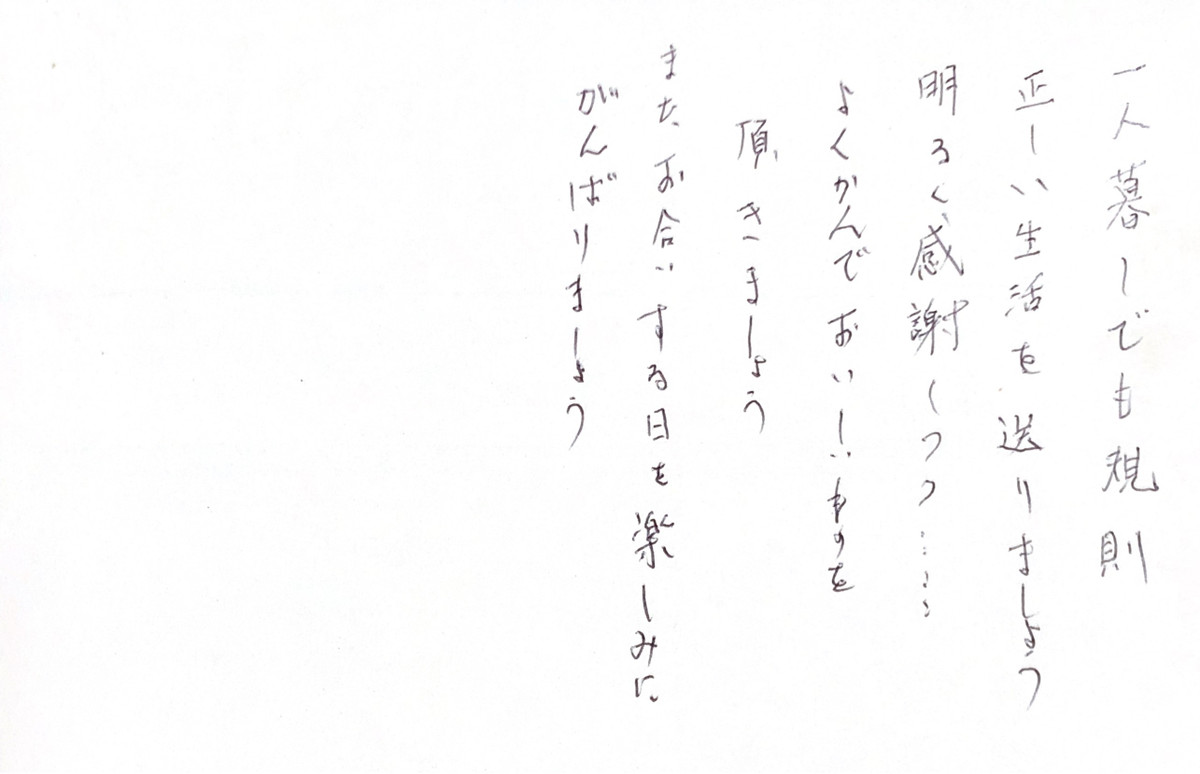 一人暮しでも規則
正しい生活を送りましょう
明るく感謝しつつ……
よくかんでおいしいものを
頂きましょう
またお合いする日を楽しみに
がんばりましょう